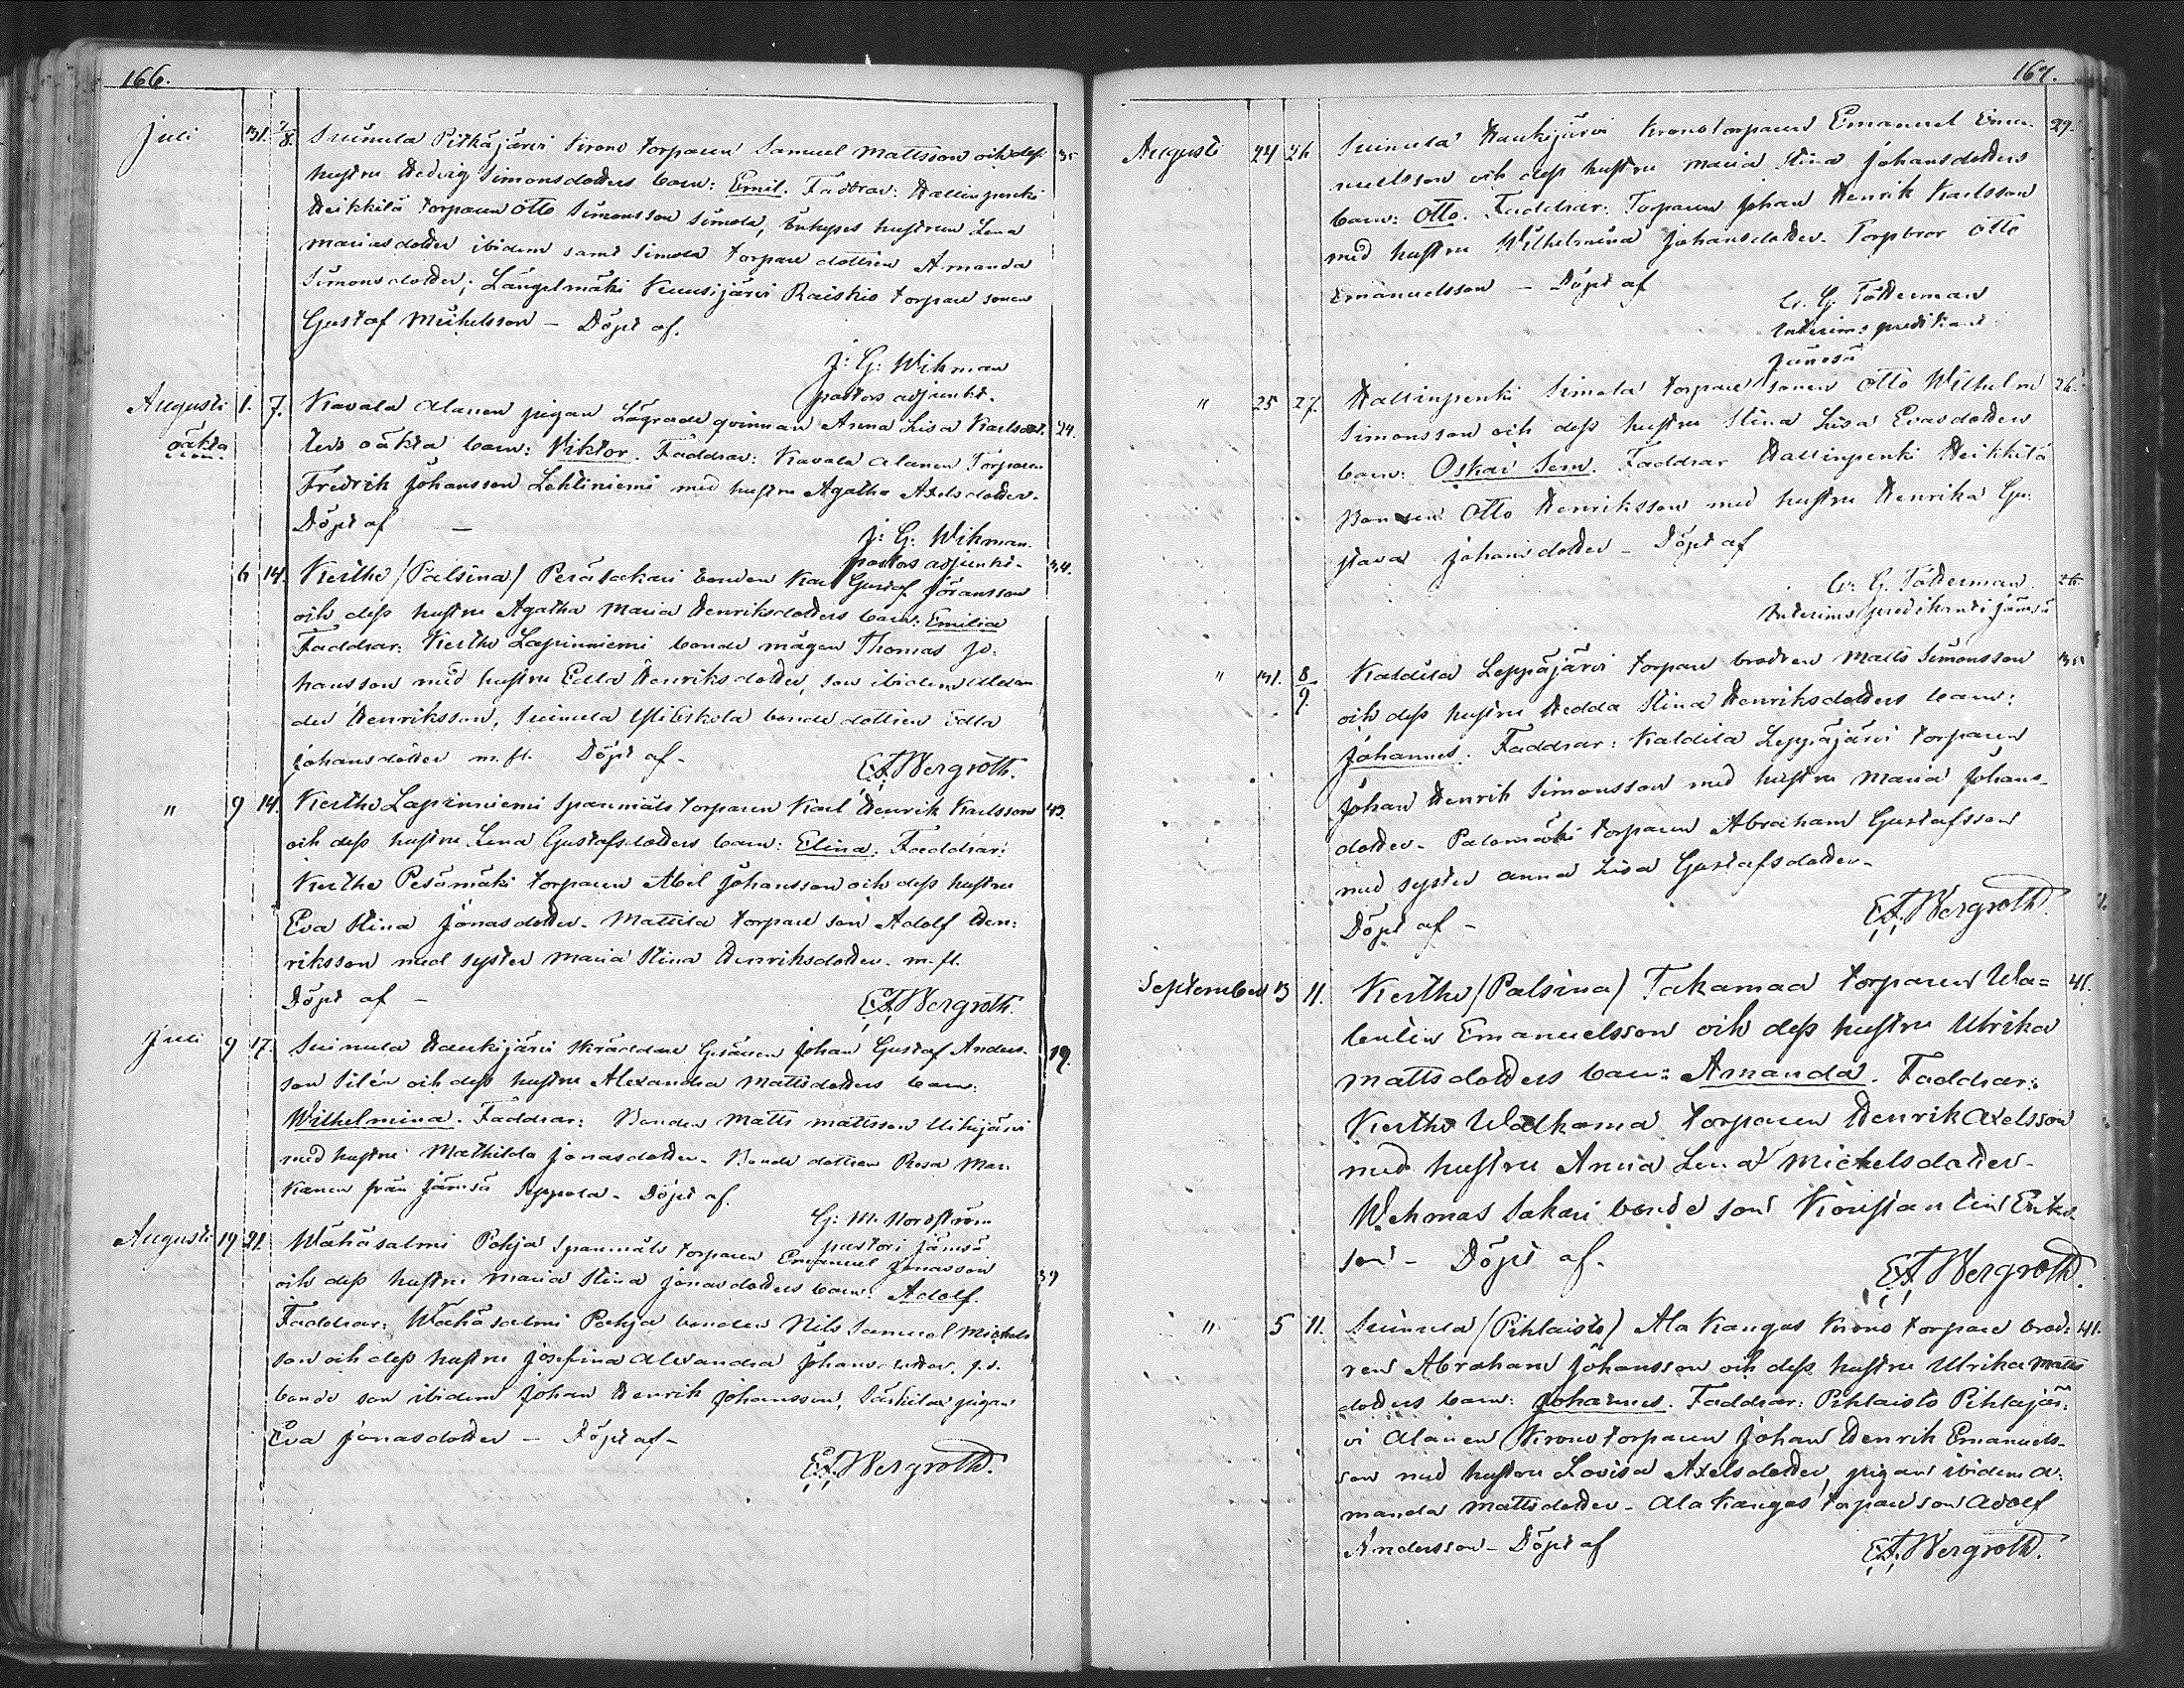 166.
Juli 31. 7/8. Suinula Pitkäjärvi Krono torparen Samuel Mattsson och dess 35
hustru Hedvig Simonsdotters barn: Emil. Faddrar: Hallinpenki
Heikkilä torparen Otto Simonsson Simola, hustrun Lena
Mariasdotter ibidem samt Simola torpare dottren Amanda
Simonsdotter; Längelmäki Kuusijärvi Raiskio torpare sonen
Gustaf Mickelsson – Döpt af.
J: G: Wikman
pastors adjunkt.
Augusti 1. 7. Kavala Alanen pigan Lägrade qvinnan Anna Lisa Karlsdot. 24.
oäkta ters oäkta barn: Viktor. Faddrar: Kavala Alanen Torparen
Fredrik Johansson Lehtiniemi med hustru Agatha Axelsdotter.
Döpt af –
J: G: Wikman.
pastors adjunkt.
6 14. Kerthe /Palsina/ Peräsakari bonden Karl Gustaf Göransson 34.
och dess hustru Agatha Maria Henriksdotters barn: Emilia
Faddrar: Kerthe Lapinniemi bonde mågen Thomas Jo-
hansson med hustru Edla Henriksdotter, son ibidem Alexan-
der Henriksson, Suinula bonde dottren Edla
Johansdotter m.fl. Döpt af –
E.F. Bergroth.
" 9 14. Kerthe Lapinniemi Spanmåls torparen Karl Henrik Karlsson 43.
och dess hustru Lena Gustafsdotters barn: Elina. Faddrar:
Kerthe Pesämäki torparen Abel Johansson och dess hustru
Eva Stina Jonasdotter. Mattila torpare son Adolf Hen-
riksson med syster Maria Stina Henriksdotter. m.fl.
Döpt af –
E.F. Bergroth.
Juli 9 17. Suinula Haukijärvi skräddare Gesällen Johan Gustaf Anders- 19.
son Silén och dess hustru Alexandra Mattsdotters barn:
Wilhelmina. Faddrar: Bonden Matts Mattsson Ukijärvi
med hustru Mathilda Jonasdotter. Bonde dottren Rosa Mar-
kanen från Jämsä Seppola – Döpt af.
G: M. Nordström
pastor i Jämsä
Augusti 19 21. Wähäsalmi Pohja Spanmåls torparen Emanuel Jonasson
och dess hustru Maria Stina Jonasdotters barn: Adolf. 39
Faddrar: Wähäsalmi Pohja bonden Nils Samuel Michels
son och dess hustru Josefina Alexandra Johansdotter, f.d.
bonde son ibidem Johan Henrik Johansson, Särkilax pigan
Eva Jonasdotter – Döpt af –
E.F. Bergroth.
167.
Augusti 24 26 Suinula Haukijärvi Kronotorparen Emanuel Ema- 29.
nuelsson och dess hustru Maria Stina Johansdotters
barn: Otto. Faddrar: Torparen Johan Henrik Karlsson
med hustru Wilhelmina Johansdotter. Torpbror Otto
Emanuelsson – Döpt af
C. G. Tötterman
Interims predikant
Jämsä
" 25 27. Hallinpenki Simola torpare sonen Otto Wilhelm 26.
Simonsson och dess hustru Stina Lisa Evasdotters
barn: Oskar Sem. Faddrar Hallinpenki Heikkilä
Bonden Otto Henriksson med hustru Henrika Gu-
stava Johansdotter – Döpt af
C. G. Tötterman. 26
Interims predikant i Jämsä
" 31. 8/9. Kaldila Leppäjärvi torpare brodren Matts Simonsson 35
och dess hustru Hedda Stina Henriksdotters barn:
Johannes. Faddrar: Kaldila Leppäjärvi torparen
Johan Henrik Simonsson med hustru Maria Johans-
dotter. Palomäki torparen Abraham Gustafsson
med syster Anna Lisa Gustafsdotter –
Döpt af –
E.F. Bergroth.
September 3 11. Kerthe /Palsina/ Takamaa torparen Wa= 41.
lentin Emanuelsson och dess hustru Ulrika
Mattsdotters barn: Amanda. Faddrar:
Kerthe Walkama torparen Henrik Axelsson
med hustru Anna Lena Michelsdotter.
Wehmas Sakari bonde son Konstantin Eriks
son – Döpt af.
E.F. Bergroth.
" 5 11. Suinula /Pihlaisto/ Ala Kangas Krono torpare brod- 41.
ren Abraham Johansson och dess hustru Ulrika Matts
dotters barn: Johannes. Faddrar: Pihlaisto Pihlajär-
vi Alanen Krono torparen Johan Henrik Emanuels-
son med hustru Lovisa Axelsdotter, pigan ibidem A-
manda Mattsdotter – Ala Kangas torpare son Adolf
Andersson – Döpt af
E.F. Bergroth.